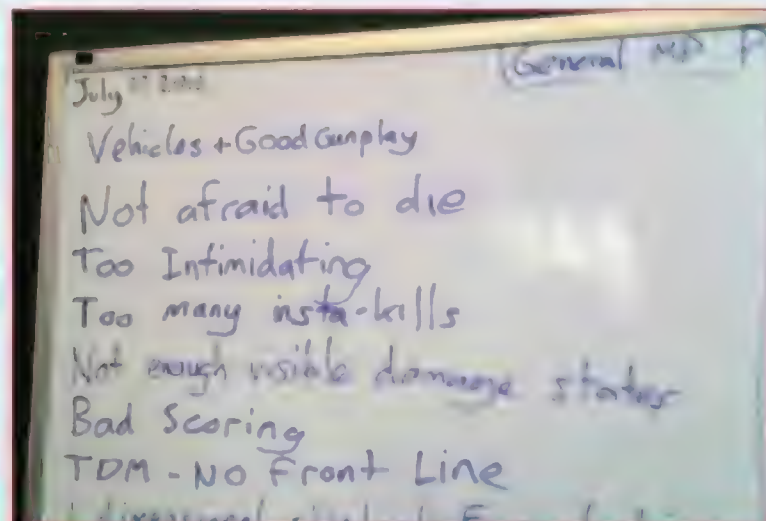 General MP P
July
Vehicles + Good Gunplay
Not afraid to die
Too Intimidating
Too many insta-kills
Not enough visible damage states
Bad Scoring
TDM - No Front Line